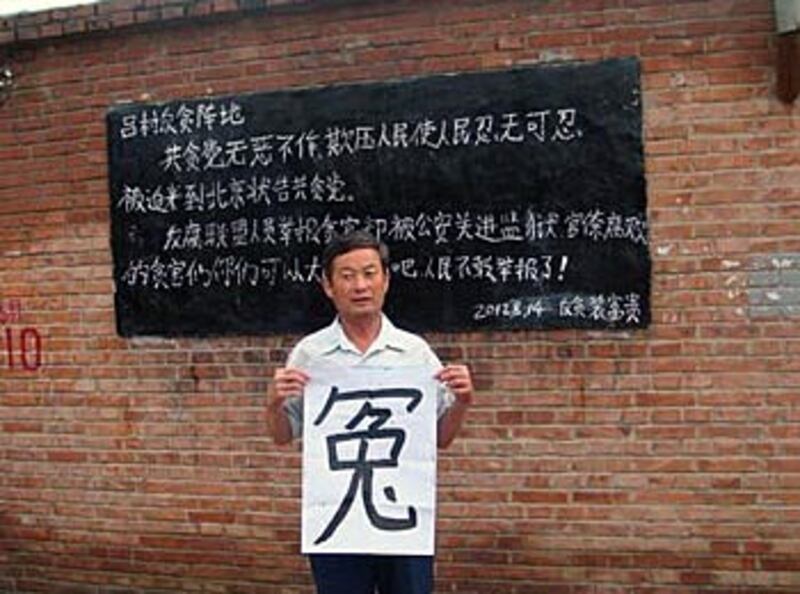 吕村反贪阵地
共贪党无恶不作,欺压人民使人民忍无可忍、
被迫来到北京状告共贪党。
反腐联盟人员举报贪官却被公安关进监狱 官僚腐败
的贪官们你们可以大 吧 人民不敢举报了!
2012.8.14 反贪裴富贵
冤
10